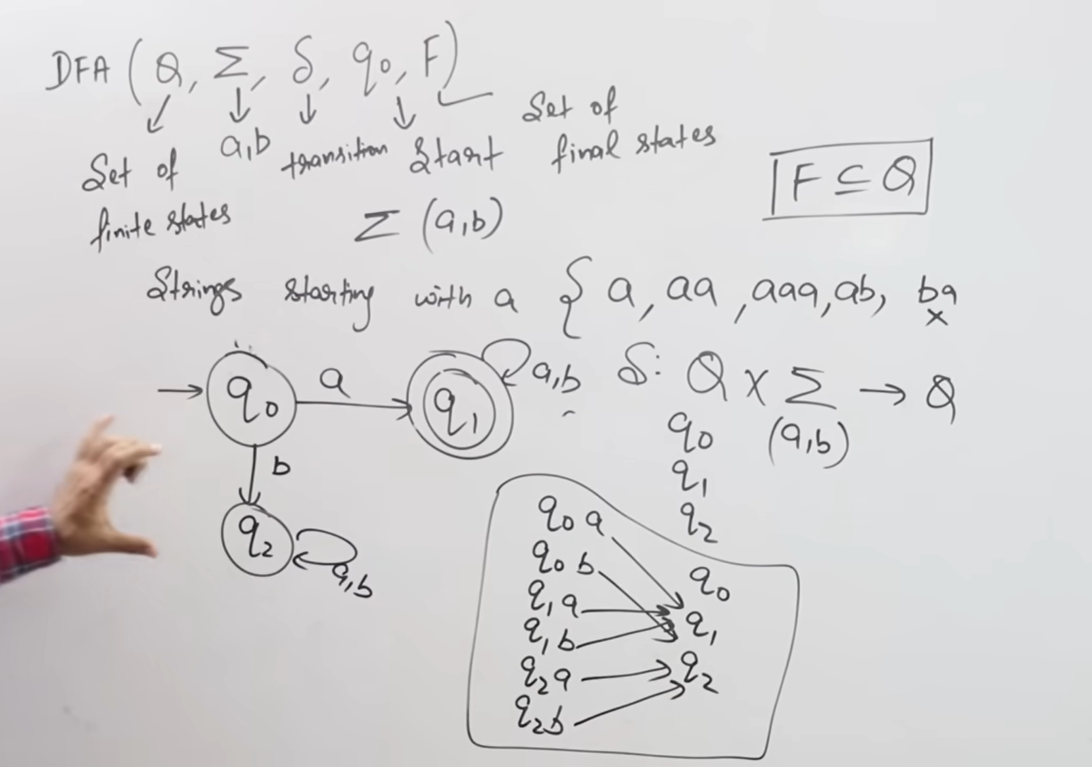 DFA (Q, Σ, δ, q0, F)
Set of finite states
a,b
transition
Start
Set of final states
F ⊆ Q
Σ (a,b)
Strings starting with a { a, aa, aaa, ab, ba
x
q0
a
q1
a,b
b
q2
a,b
δ: Q X Σ → Q
q0 (a,b)
q1
q2
q0 a
q0 b
q1 a
q1 b
q2 a
q2 b
q0
q1
q2